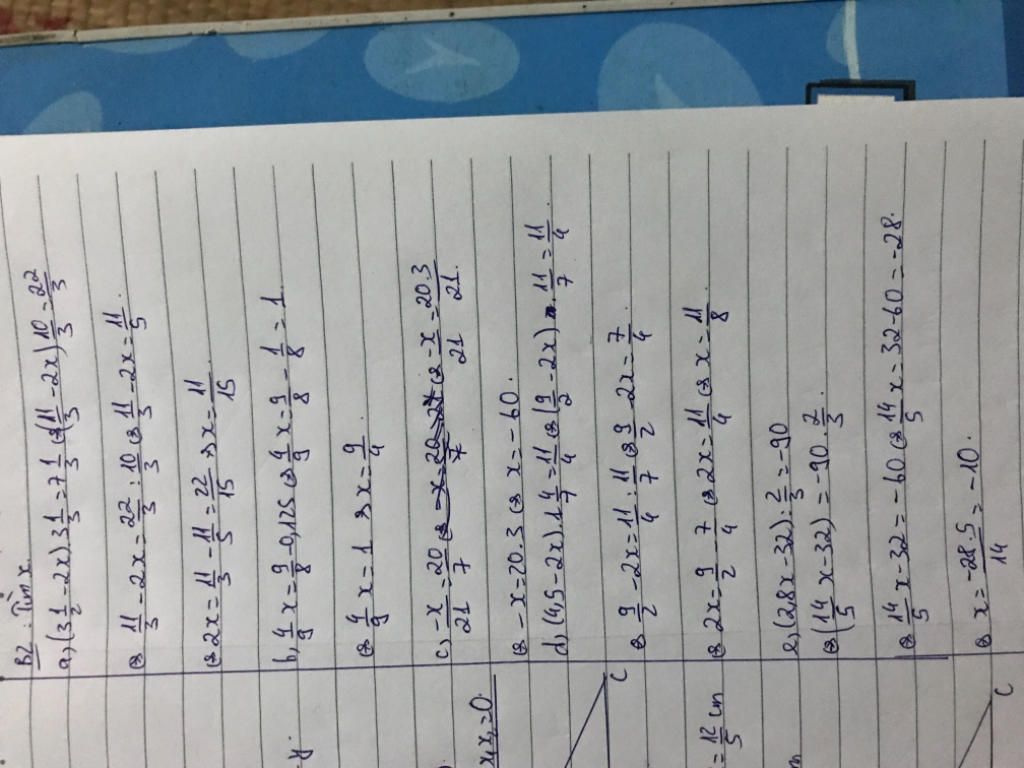 B2: Tìm x.
a, (3 1/2 - 2x) 3 1/3 = 7 1/3 ⇔ (11/3 - 2x) 10/3 = 22/3
⇔ 11/3 - 2x = 22/3 : 10/3 ⇔ 11/3 - 2x = 11/5.
⇔ 2x = 11/3 - 11/5 = 22/15 ⇔ x = 11/15
b, 4/9 x = 9/8 - 0,125 ⇔ 4/9 x = 9/8 - 1/8 = 1.
⇔ 4/9 x = 1 ⇔ x = 9/4
c, -x/21 = 20/7 ⇔ -x/21 = 20.3/21.
⇔ -x = 20.3 ⇔ x = -60.
d, (4,5 - 2x). 1 4/7 = 11/4 ⇔ (9/2 - 2x). 11/7 = 11/4
⇔ 9/2 - 2x = 11/4 : 11/7 ⇔ 9/2 - 2x = 7/4.
⇔ 2x = 9/2 - 7/4 ⇔ 2x = 11/4 ⇔ x = 11/8
e, (2,8x - 32) : 2/3 = -90
⇔ (14/5 x - 32) = -90. 2/3
⇔ 14/5 x - 32 = -60 ⇔ 14/5 x = 32 - 60 = -28.
⇔ x = -28.5/14 = -10.
y.
x x, = 0.
C
= 12/5 cm
C